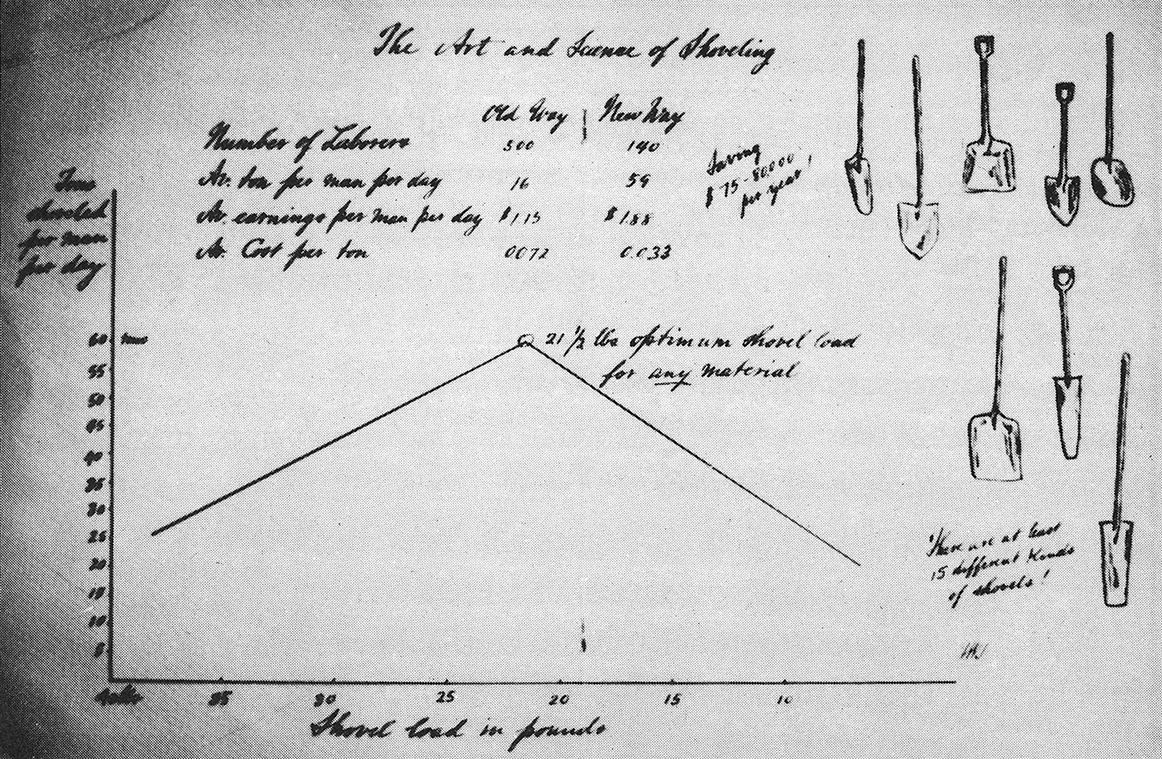 The Art and Science of Shoveling
Old Way | New Way
Number of Laborers 500 140
Av. ton per man per day 16 59
Av. earnings per man per day $1.15 $1.88
Av. Cost per ton 0072 0.033
Saving
$75-80,000
per year!
Tons
shoveled
per man
per day
60 tons
21 1/2 lbs optimum shovel load
for any material
55
50
45
40
35
30
25
20
15
10
5
40 lbs 35 30 25 20 15 10
Shovel load in pounds
There are at least
15 different kinds
of shovels!